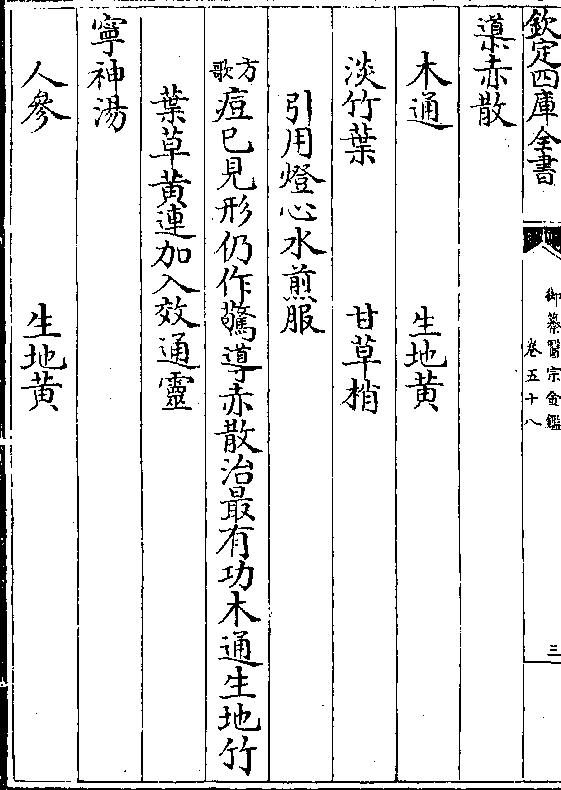 欽定四庫全書
御纂醫宗金鑑
卷五十八
三
導赤散
木通　生地黄
淡竹葉　甘草梢
引用燈心水煎服
方歌　痘已見形仍作驚導赤散治最有功木通生地竹
葉草黄連加入效通靈
寧神湯
人參　生地黄